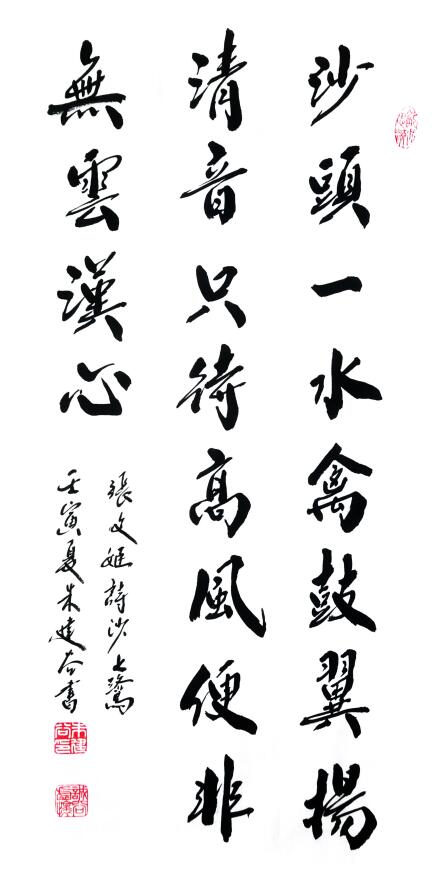 沙頭一水禽鼓翼揚
清音只待高風便非
無雲漢心
張文姬詩沙上鷺
壬寅夏朱建書